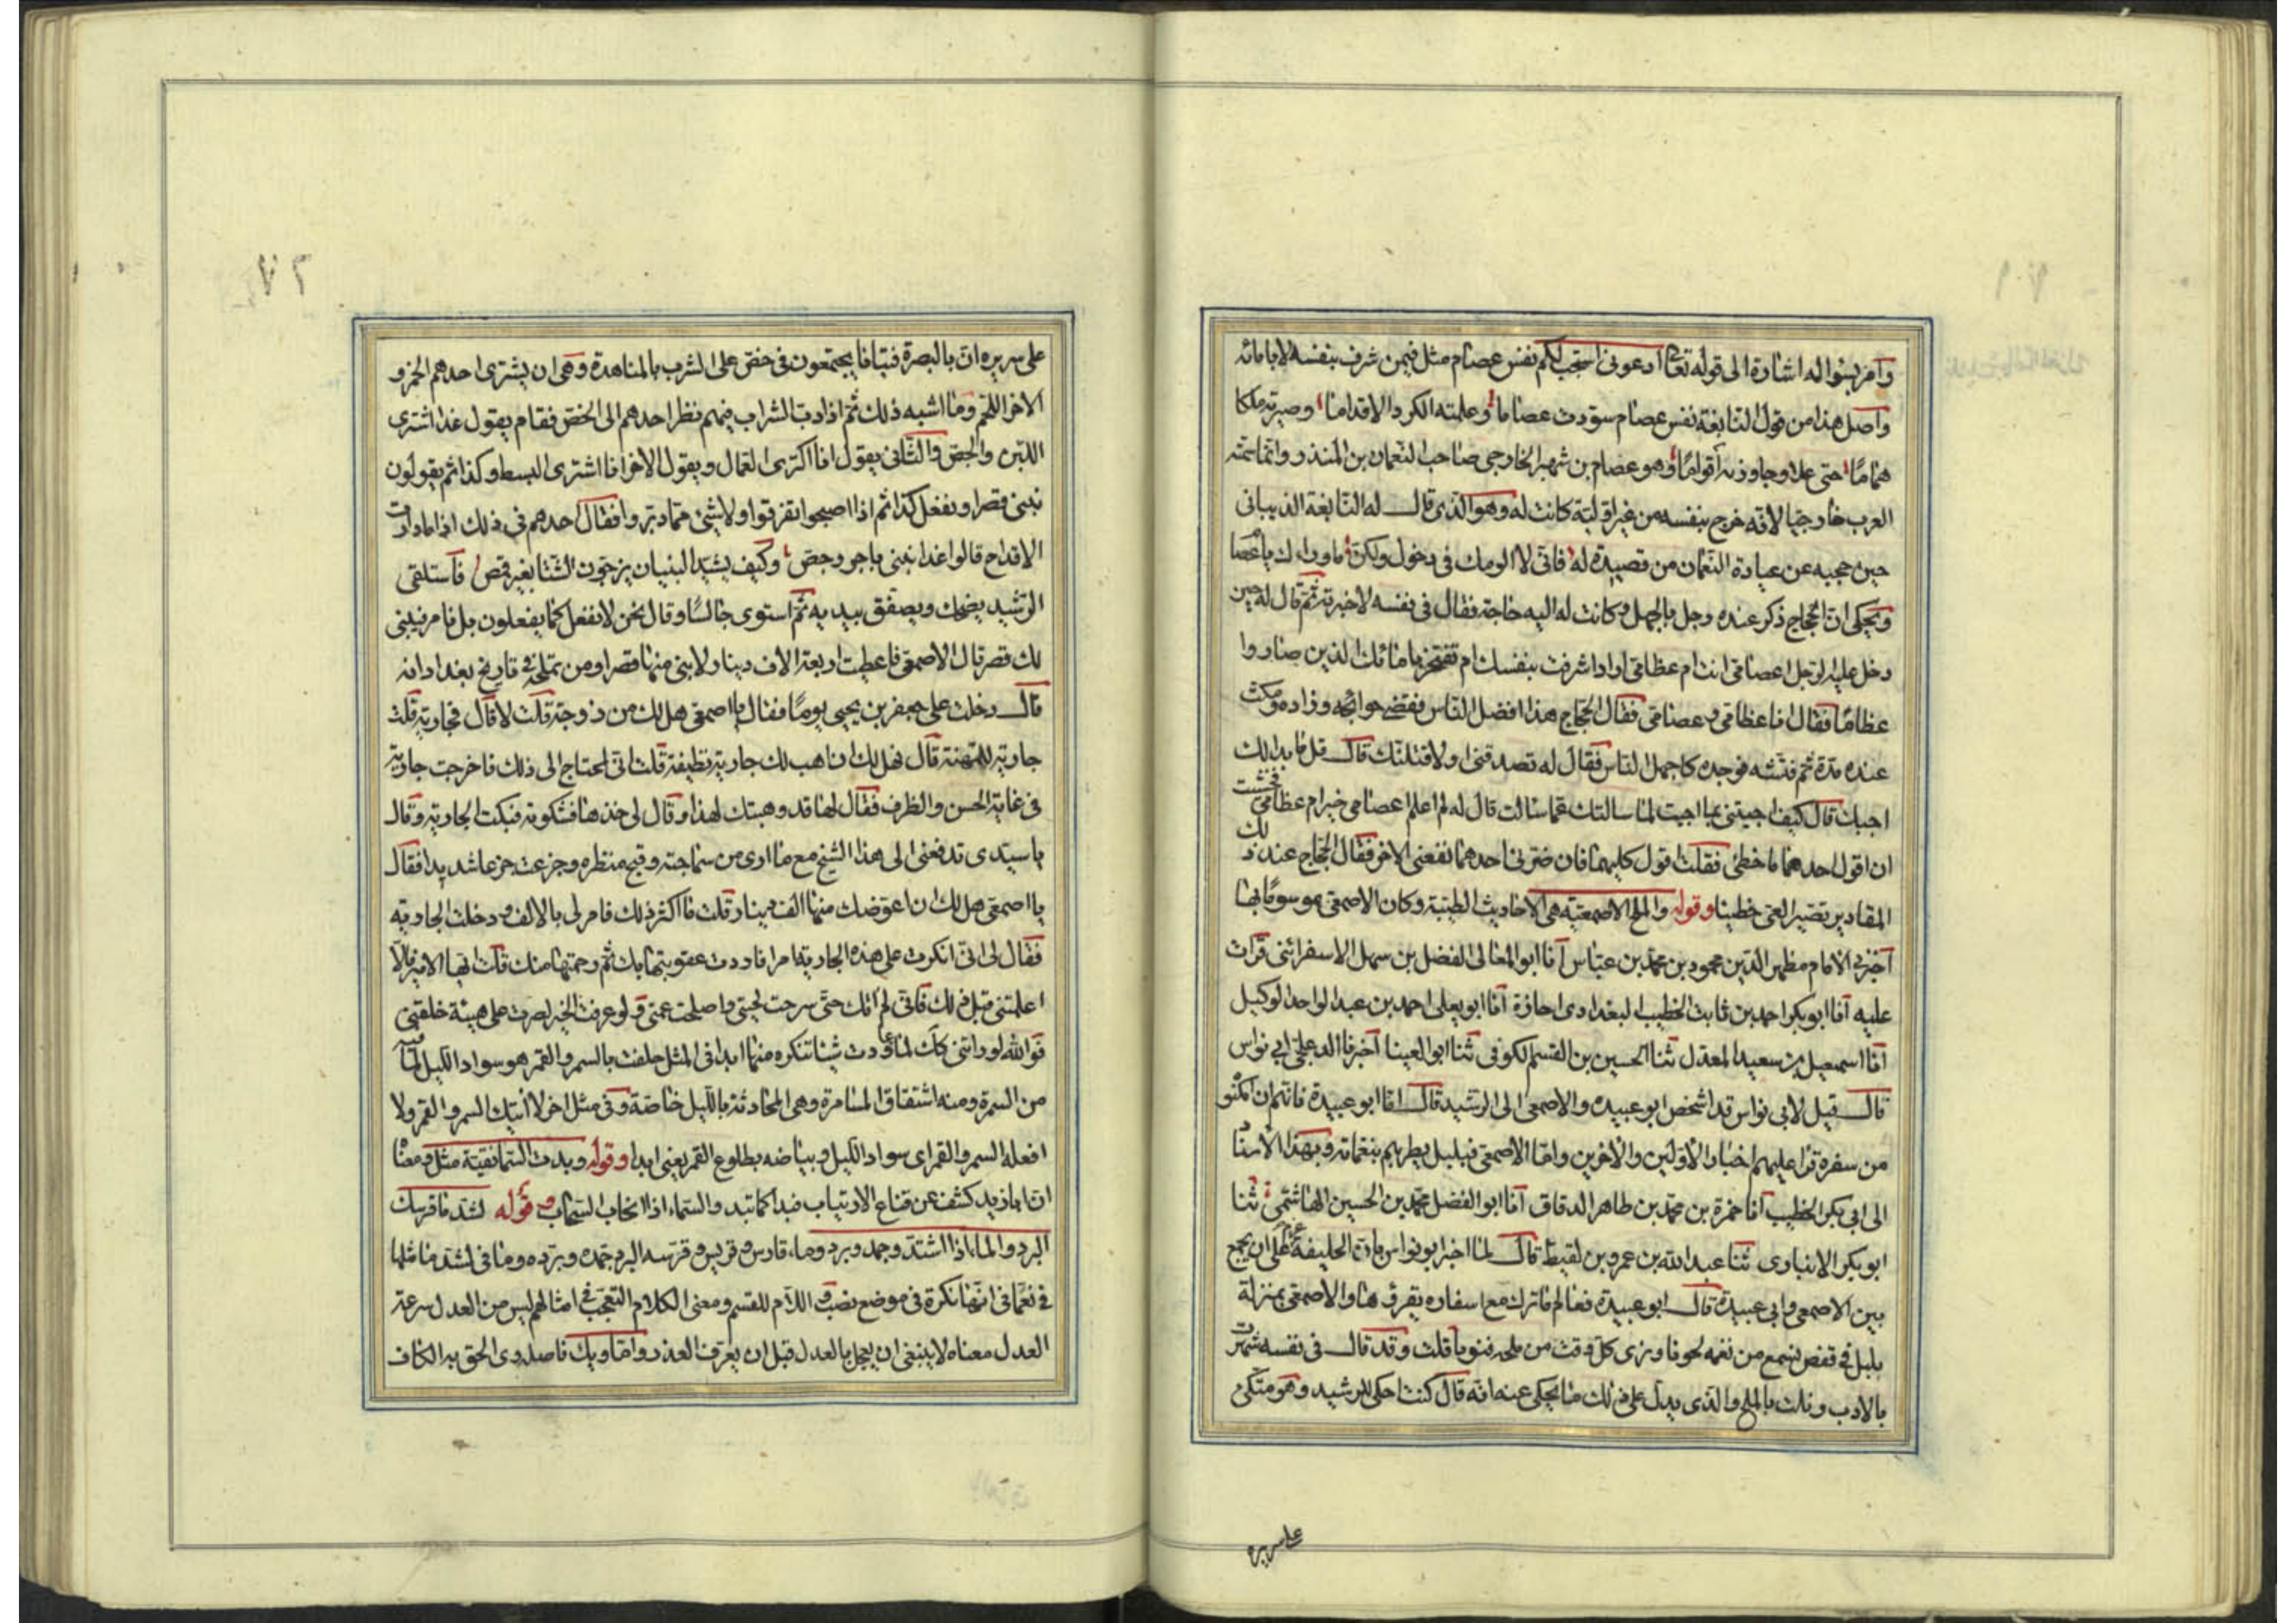 وامر بسؤاله اشارة الى قوله تعالى ادعونى استجب لكم نفس عصام مثل فيمن شرف بنفسه لا بابائه
واصل هذا من قول النابغة نفس عصام سودت عصاما وعلمته الكر والاقداما وصيرته ملكا
هماما حتى علا وجاوز الاقواما وهو عصام بن شهبر الخارجى صاحب النعمان بن المنذر وانما سمته
العرب خارجيا لانه خرج بنفسه من غير اولية كانت له وهو الذى قال له النابغة الذبيانى
حين حجبه عن عيادة النعمان من قصيدة له فانى لا الومك فى دخول ولكن ما وراءك يا عصا
ويحكى ان الحجاج ذكر عنده رجل بالجهل وكانت له اليه حاجة فقال فى نفسه لاخبرنه ثم قال له حين
دخل عليه الرجل اعصامى انت ام عظامى اراد اشرفت بنفسك ام تفتخر بابائك الذين صاروا
عظاما فقال انا عظامى وعصامى فقال الحجاج هذا افضل الناس فقضى حوائجه وزاده ومكث
عنده مدة ثم فتشه فوجده كاجهل الناس فقال له تصدقنى او لاقتلنك قال قل ما بدا لك
اجبك قال كيف اجبتنى بما اجبت لما سالتك عما سالت قال له لم اعلم اعصامى خير ام عظامى فخشيت
ان اقول احدهما فاخطئ فقلت اقول كليهما فان ضرنى احدهما نفعنى الاخر فقال الحجاج عند ذلك
المقادير تصير العى خطيبا وقوله والملح الاصمعية هى الاحاديث الطيبة وكان الاصمعى موسوما بها
اخبرنى الامام مظهر الدين محمود بن محمد بن عباس انا ابو المعالى الفضل بن سهل الاسفرائنى قرات
عليه انا ابو بكر احمد بن ثابت الخطيب البغدادى اجازة انا ابو يعلى احمد بن عبد الواحد الوكيل
انا اسمعيل بن سعيد المعدل ثنا الحسين بن القسم الكوفى ثنا ابو العينا اخبرنا الدعلجى ابى نواس
قال قيل لابى نواس قد اشخص ابو عبيدة والاصمعى الى الرشيد قال اما ابو عبيدة فانهم ان امكنو
من سفره قرا عليهم اخبار الاولين والاخرين واما الاصمعى فبلبل يطربهم بنغماته وبهذا الاسنا
الى ابى بكر الخطيب انا حمزة بن محمد بن طاهر الدقاق انا ابو الفضل محمد بن الحسين الهاشمى ثنا
ابو بكر الانبارى ثنا عبد الله بن عمرو بن لقيط قال لما اخبر ابو نواس بان الخليفة على ان يجمع
بين الاصمعى وابى عبيدة قال ابو عبيدة فعالم ما ترك مع اسفاره يقرؤها والاصمعى بمنزلة
بلبل فى قفص نسمع من نغمه لحونا ونرى كل وقت من ملحه فنونا قلت وقد قال فى نفسه شهرت
بالادب ونلت بالملح والذى يدل على ذلك ما يحكى عنه انه قال كنت احكى للرشيد وهو متكئ
على سريره
على سريره ان بالبصرة فتيانا يجتمعون فى خص على الشرب بالمناهدة وهى ان يشترى احدهم الخمر و
الاخر اللحم وما اشبه ذلك ثم اذا دب الشراب فيهم نظر احدهم الى الخص فقام يقول غدا اشترى
اللبن والجص والثانى يقول انا اكترى العمال ويقول الاخر انا اشترى البسط وكذا ثم يقولون
نبنى قصرا ونفعل كذا ثم اذا اصبحوا تفرقوا ولا شئ مما دبروا فقال احدهم فى ذلك اذا ما دارت
الاقداح قالوا غدا نبنى باجر وجص وكيف يشيد البنيان يزجون الشتا بغير قمص فاستلقى
الرشيد يضحك ويصفق بيديه ثم استوى جالسا وقال نحن لا نفعل كما يفعلون بل نامر فيبنى
لك قصر قال الاصمعى فاعطيت اربعة الاف دينار لابنى منها قصرا ومن ملحه فى تاريخ بغداد انه
قال دخلت على جعفر بن يحيى يوما فقال يا اصمعى هل لك من زوجة قلت لا قال فجارية قلت
جارية للمهنة قال فهل لك ان اهب لك جارية نظيفة قلت انى لمحتاج الى ذلك فاخرجت جارية
فى غاية الحسن والظرف فقال لها قد وهبتك لهذا وقال لى خذها فشكرته فبكت الجارية وقالت
يا سيدى تدفعنى الى هذا الشيخ مع ما ارى من سماجته وقبح منظره وجزعت جزعا شديدا فقال
يا اصمعى هل لك ان اعوضك منها الف دينار قلت ما اكثر ذلك فامر لى بالالف ودخلت الجارية
فقال لى انى انكرت على هذه الجارية امرا فاردت عقوبتها بك ثم رحمتها منك قلت ايها الامير فالا
اعلمتنى قبل ذلك فانى لم اتك حتى سرحت لحيتى واصلحت عمتى ولو عرفت الخبر لصرت على هيئة خلقتى
فوالله لو راتنى كذلك لما عاودت شيئا تنكره منها ابدا فى المثل حلفت بالسمر والقمر هو سواد الليل لما فيه
من السمرة ومنه اشتقاق المسامرة وهى المحادثة بالليل خاصة وفى مثل اخر لا اتيك السمر والقمر ولا
افعله السمر والقمر اى سواد الليل وبياضه بطلوع القمر يعنى ابدا وقوله وبدت السما نقية مثل ومعنا
ان ابا زيد كشف عن قناع الارتياب فبدا كما تبدو السماء اذا انجاب السحاب وقوله لشد ما قرسك
البرد والماء اذا اشتد وجمد وبرد وماء قارس وقريس وقرسه البرد جمده وبرده وما فى لشد ما مثلها
فى نعما فى انها نكرة فى موضع نصب واللام للقسم ومعنى الكلام التعجب فى امثالهم ليس من العدل سرعة
العدل معناه لا ينبغى ان يعجل بالعدل قبل ان يعرف العذر واما ويك فاصله وى الحق به الكاف